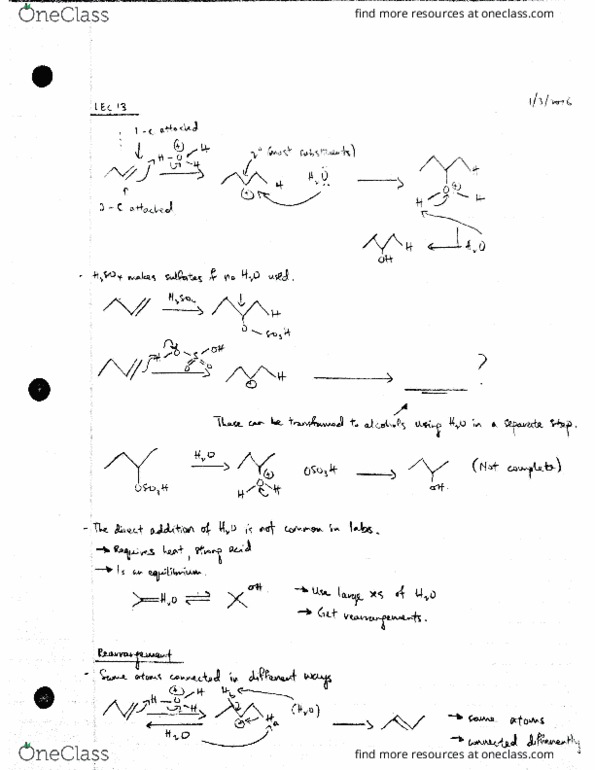 OneClass
find more resources at oneclass.com
LEC 13
1/3/2016
1-C attached
2-C attached
2° (most substituents)
H
H₂O
H
H
H₂O
H
OH
- H₂SO₄ makes sulfates if no H₂O used.
H₂SO₄
H
O
SO₃H
H
O
S
OH
O
O
H
?
These can be transformed to alcohols using H₂O in a separate step.
H₂O
OSO₃H
OSO₃H
OH
(Not complete)
- The direct addition of H₂O is not common in labs.
→ Requires heat, strong acid
→ Is an equilibrium.
H₂O
OH
→ Use large xs of H₂O
→ Get rearrangements.
Rearrangement
- Same atoms connected in different ways
H
O
H
H
Hb
Ha
(H₂O)
H₂O
→ same atoms
→ connected differently
OneClass
find more resources at oneclass.com